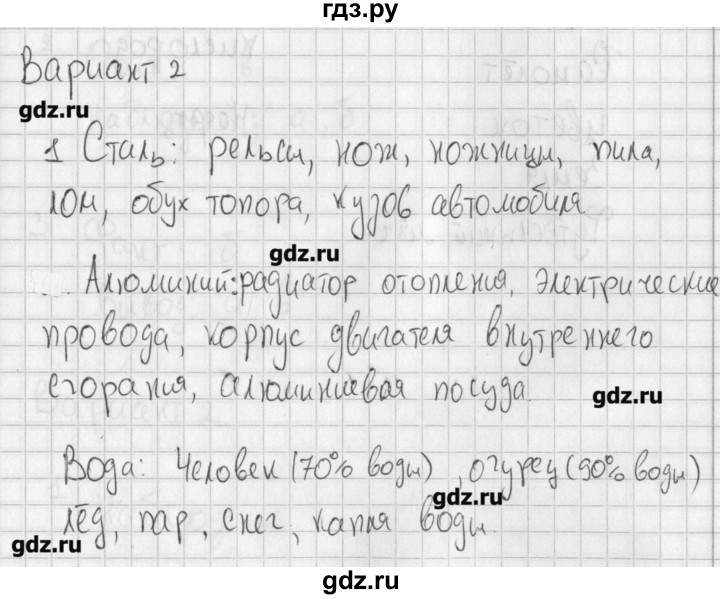 гдз.ру
Вариант 2
gdz.ru
1 Сталь: рельсы, нож, ножницы, пила,
лом, обух топора, кузов автомобиля
gdz.ru
Алюминий: радиатор отопления, электрические
провода, корпус двигателя внутреннего
сгорания, алюминиевая посуда.
gdz.ru
Вода: Человек (70% воды), огурец (90% воды)
gdz.ru
лёд, пар, снег, капля воды.
gdz.ru
gdz.ru